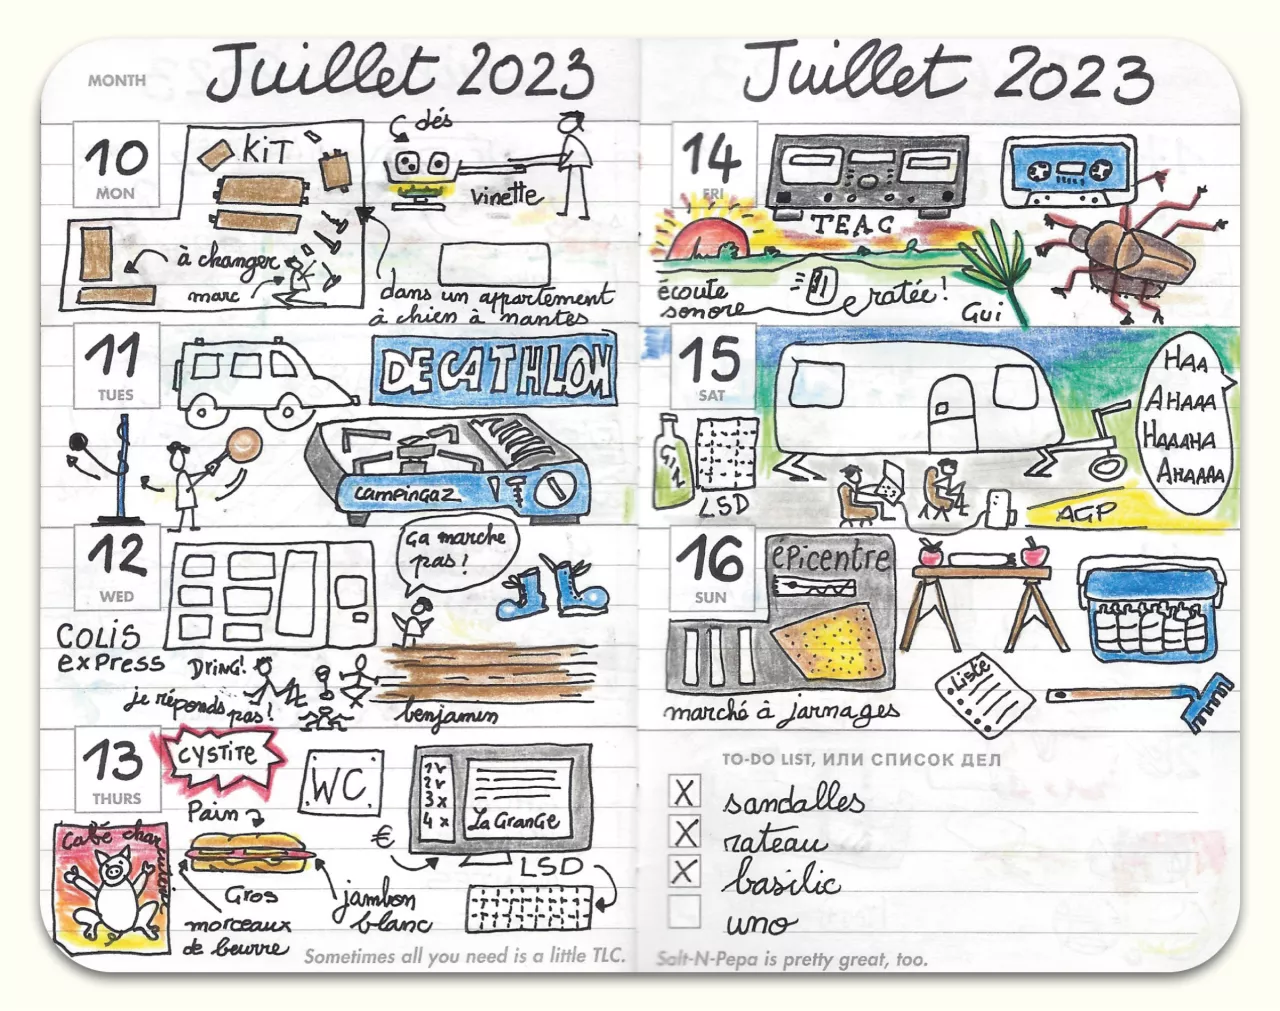 MONTH
Juillet 2023
10
MON
KiT
à changer
marc
dés
vinette
dans un appartement
à chien à nantes
11
TUES
DECATHLON
campingaz
12
WED
COLiS
exPress
DRiNG!
je réponds pas!
ça marche
pas!
benjamin
13
THURS
CYSTiTE
WC
Pain
Café charcuterie
Gros
morceaux
de beurre
jambon
blanc
€
1 v
2 v
3 x
4 x
La GranGe
LSD
Sometimes all you need is a little TLC.
Juillet 2023
14
FRI
TEAC
écoute
sonore
ratée!
Gui
15
SAT
GiN
LSD
HAA
AHAAA
HAAAHA
AHAAAA
AGP
16
SUN
éPicentre
marché à jarnages
Liste
TO-DO LIST, ИЛИ СПИСОК ДЕЛ
X sandalles
X rateau
X basilic
uno
Salt-N-Pepa is pretty great, too.